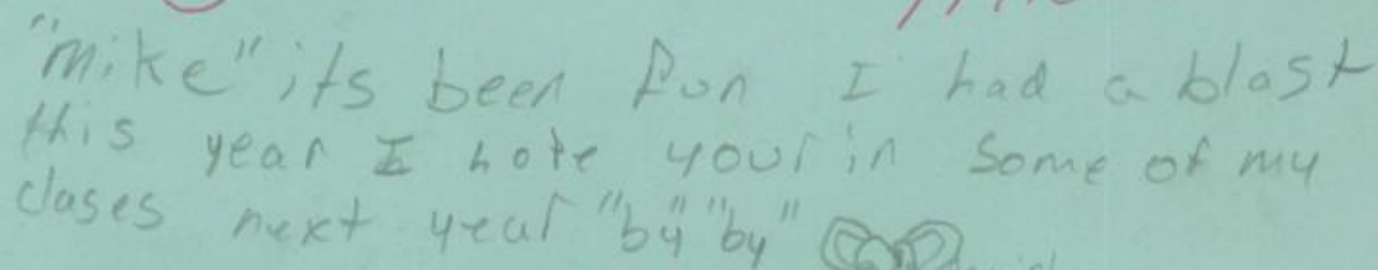 "mike" its been fun I had a blast
this year I hote your in some of my
clases next year "by" "by"